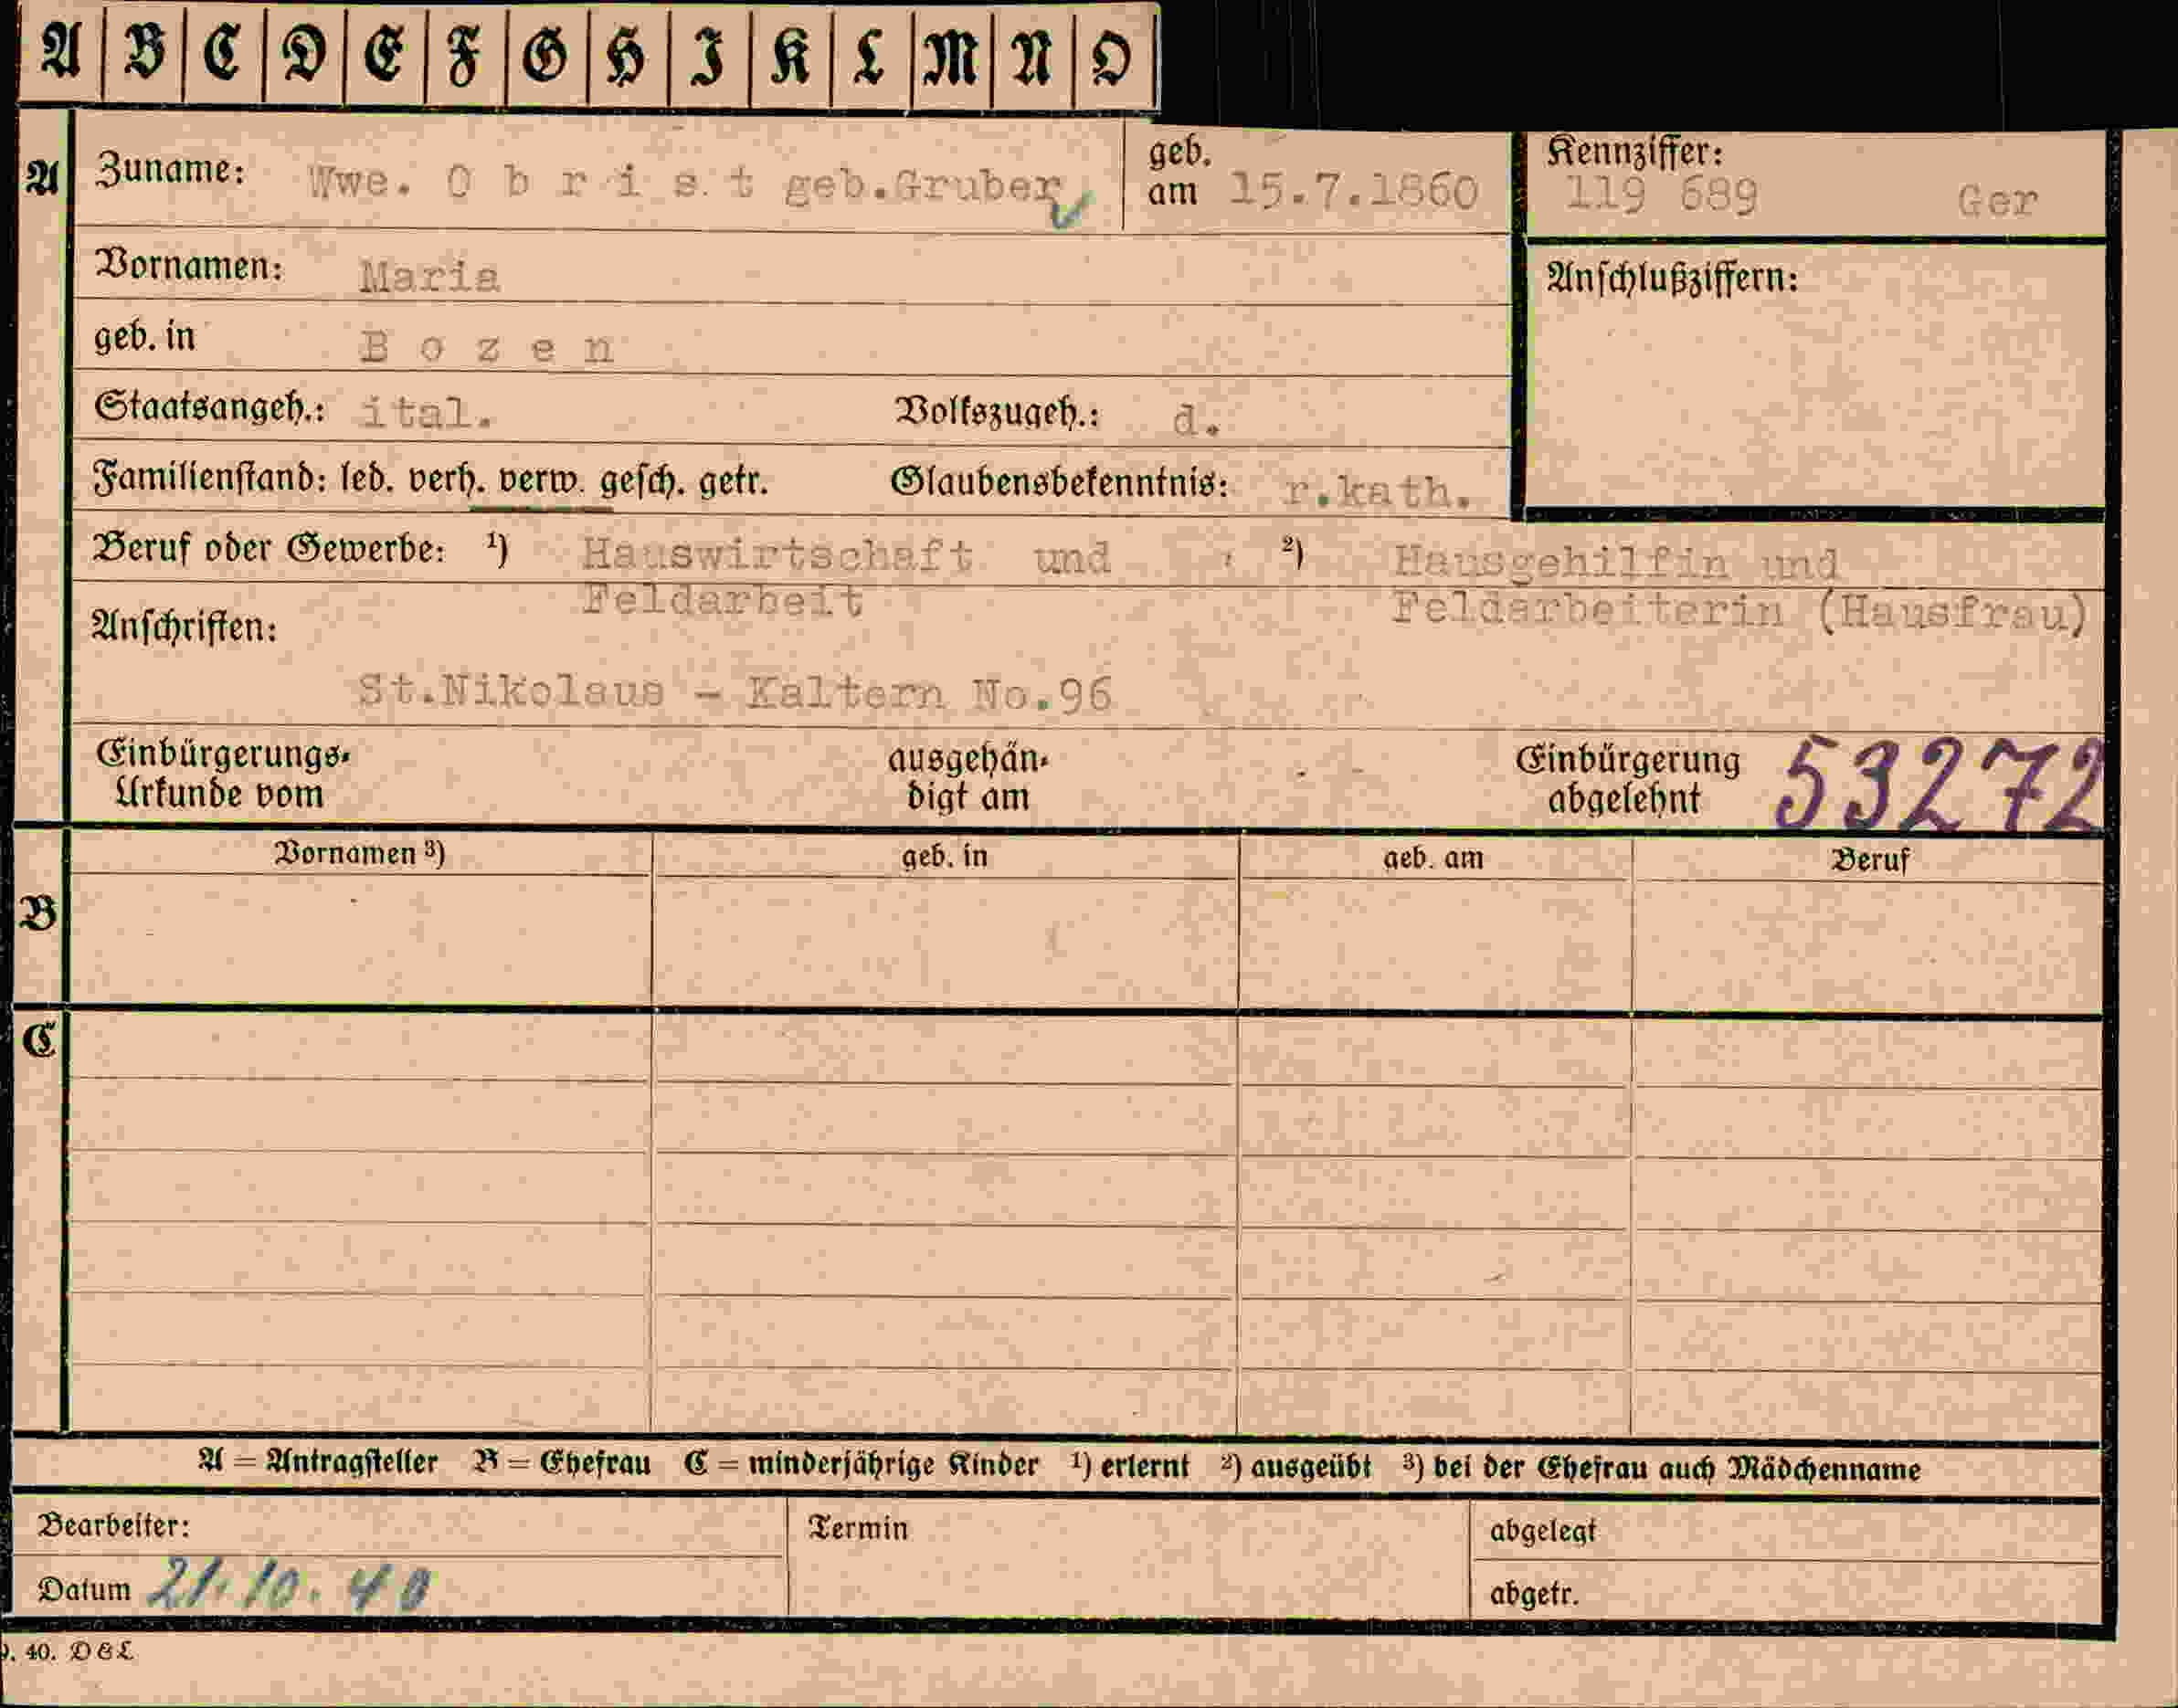 A B C D E F G H I K L M N O
A Zuname: Wwe. O b r i s t geb.Gruber geb. am 15.7.1860 Kennziffer: 119 689 Ger
Vornamen: Maria Anschlußziffern:
geb. in B o z e n
Staatsangeh.: ital. Volkszugeh.: d.
Familienstand: led. verh. verw. gesch. getr. Glaubensbekenntnis: r.kath.
Beruf oder Gewerbe: ¹) Hauswirtschaft und ²) Hausgehilfin und
Feldarbeit Feldarbeiterin (Hausfrau)
Anschriften:
St.Nikolaus - Kaltern No.96
Einbürgerungs- ausgehän- Einbürgerung 53272
Urkunde vom digt am abgelehnt
Vornamen ³) geb. in geb. am Beruf
B
C
A = Antragsteller B = Ehefrau C = minderjährige Kinder ¹) erlernt ²) ausgeübt ³) bei der Ehefrau auch Mädchenname
Bearbeiter: Termin abgelegt
Datum 21.10.40 abgetr.
. 40. D&L